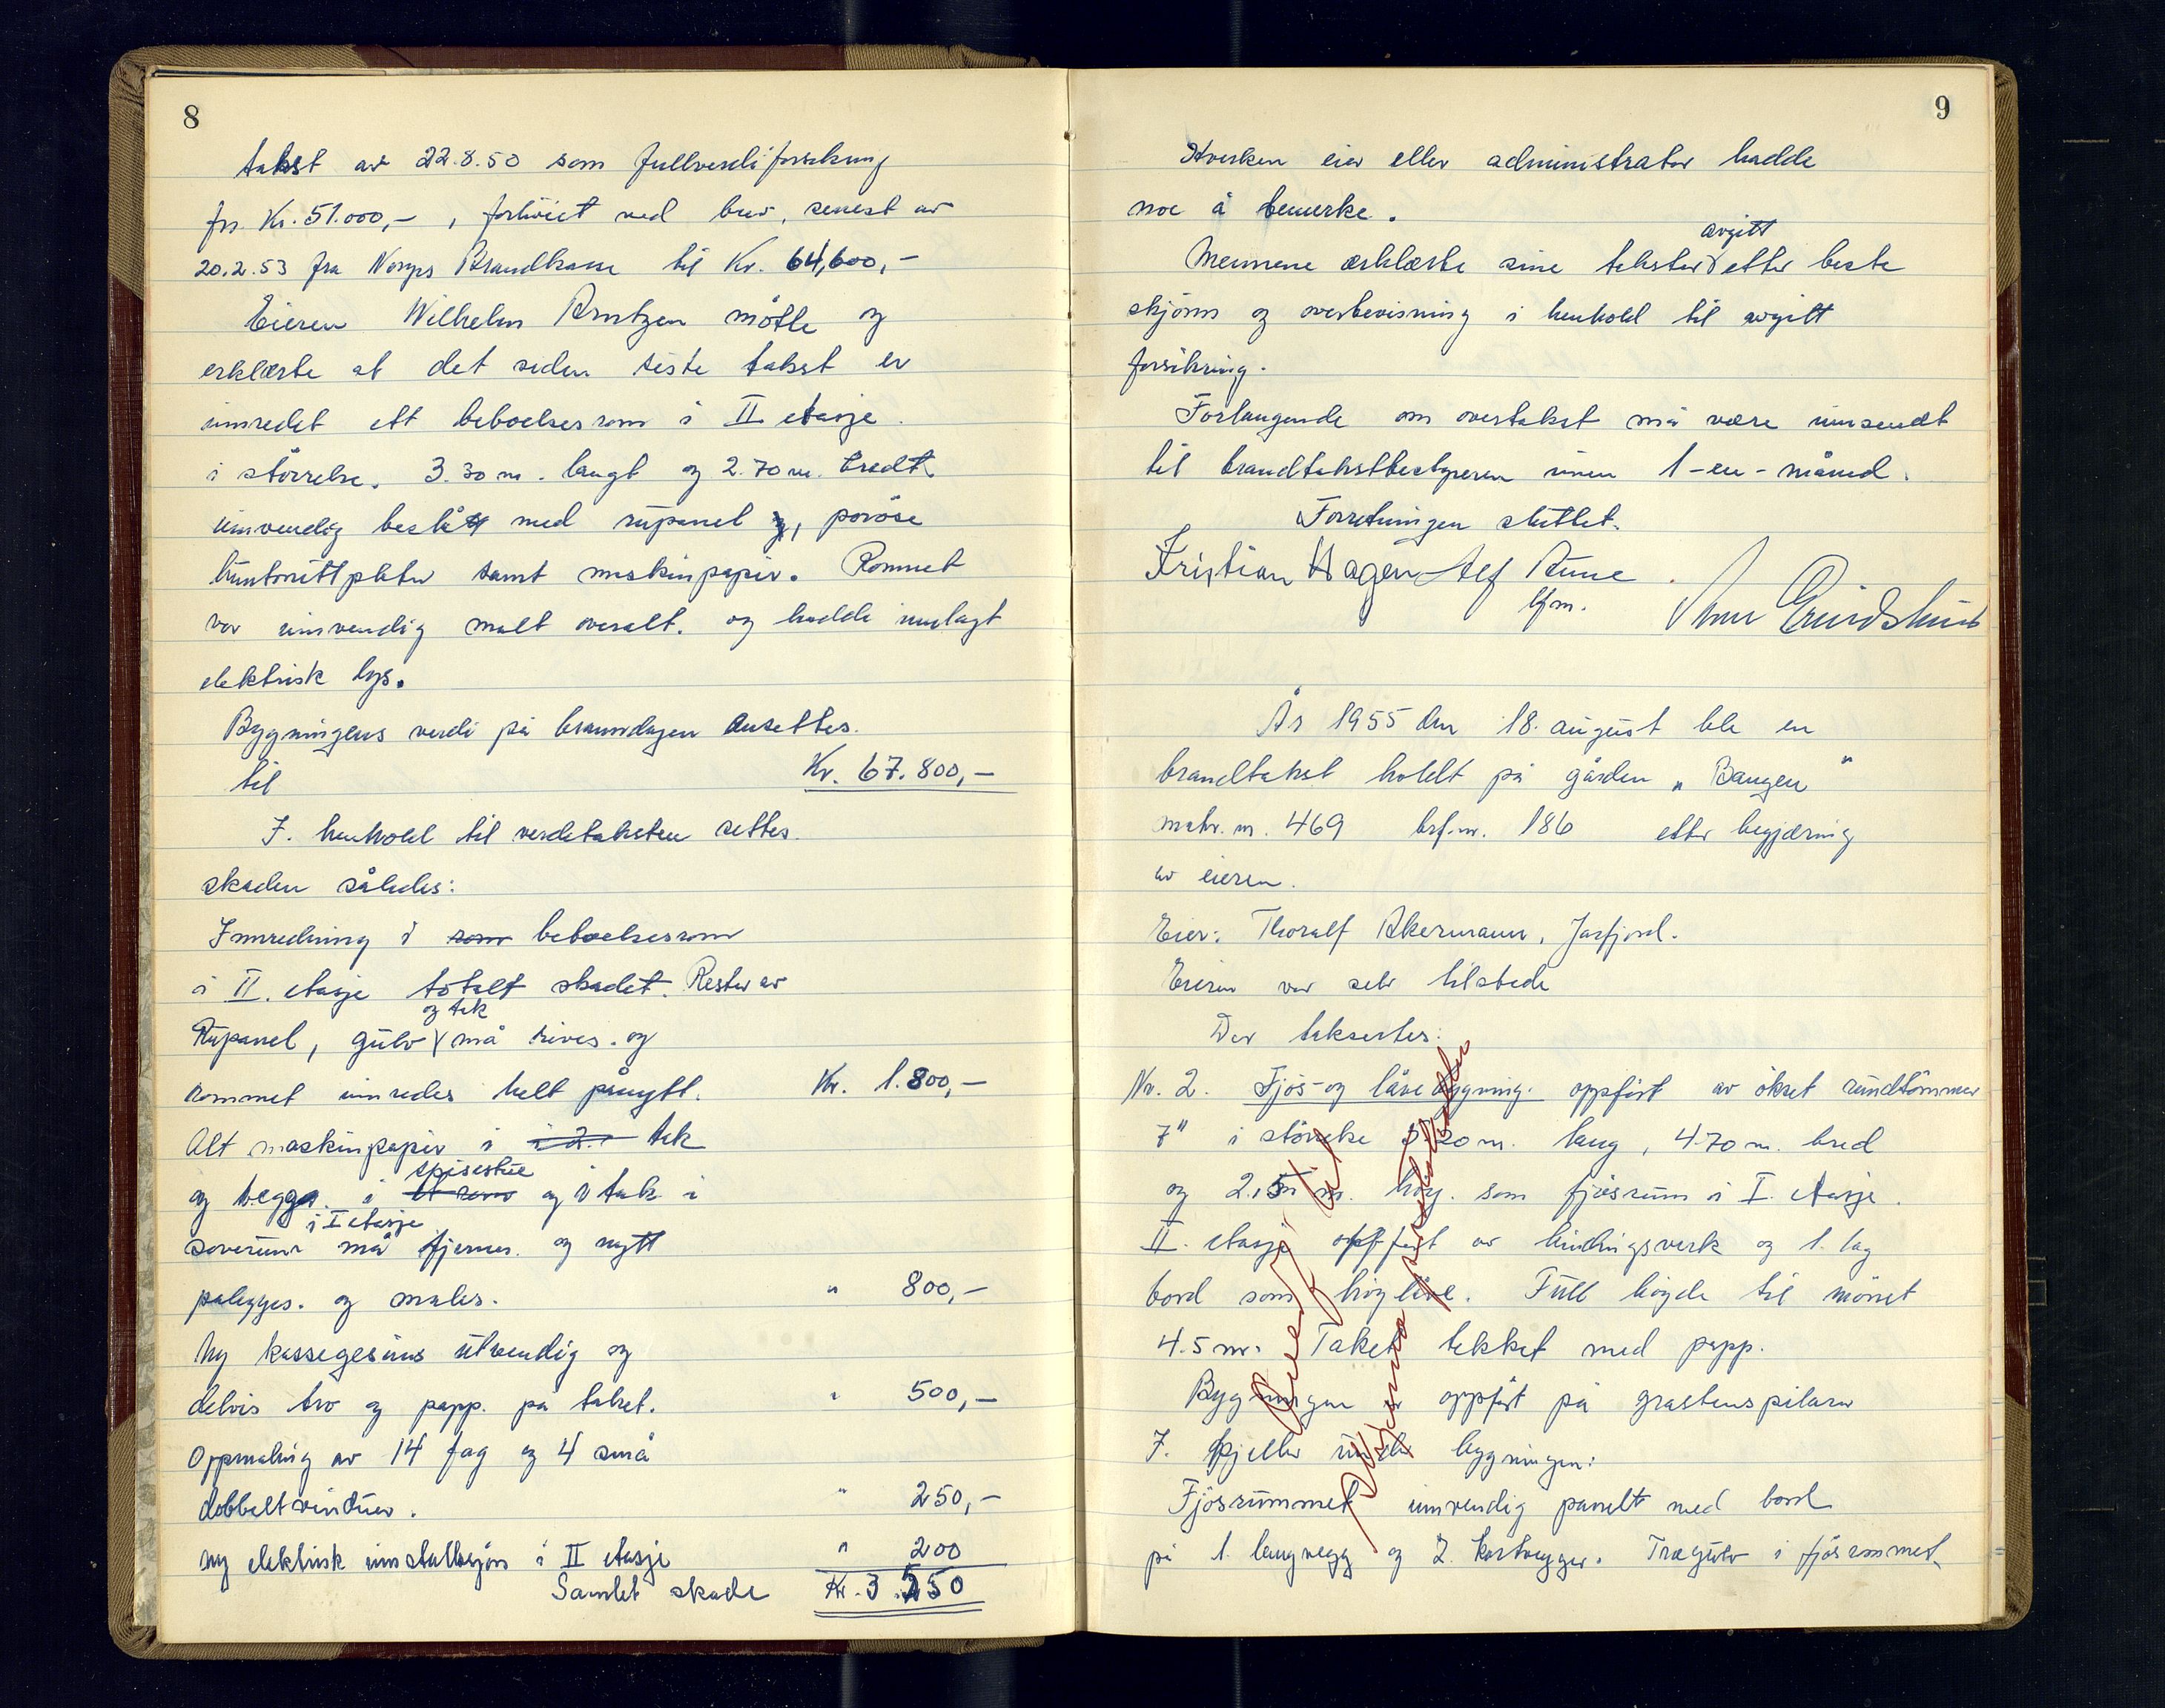 8
takst av 22.8.50 som fullverdiforsikring
for Kr. 51.000,- , forhöiet ved brev, senest av
20.2.53 fra Norges Brandkasse til Kr. 64,600,-
Eieren Wilhelm Arntzen mötte og
erklærte at det siden siste takst er
innredet ett beboelsesrom i II etasje.
i störrelse. 3.30 m. langt og 2.70 m. bredt
innvendig beslått med rupanel, poröse
huntonittplater samt maskinpapir. Rommet
var innvendig malt overalt. og hadde innlagt
elektrisk lys.
Bygningens verdi på branndagen ansettes.
til Kr. 67.800,-
I. henhold til verditaksten settes.
skaden således:
Innredning i rom beboelsesrom
i II. etasje totalt skadet. Rester av
og tak
Rupanel, gulv må rives. og
rommet innredes helt pånytt. Kr. 1.800,-
Alt maskinpapir i i 2. tak
spisestue
og vegger. i et rom og i tak i
i I etasje
soverum må fjernes. og nytt
pålegges. og males. " 800,-
Ny kassegesims utvendig og
delvis tro og papp. på taket. " 500,-
Oppmaling av 14 fag og 4 små
dobbeltvinduer. " 250,-
ny elektrisk installasjon i II etasje " 200
Samlet skade Kr. 3.550
9
Hverken eier eller administrator hadde
noe å bemerke.
avgitt
Mennene erklærte sine takster etter beste
skjönn og overbevisning i henhold til avgitt
forsikring.
Forlangende om overtakst må være innsendt
til brandtakstbestyreren innen 1-en-måned.
Forretningen sluttet.
Kristian Hagen Alf Aune
lfm.
År 1955 den 18. august ble en
brandtakst holdt på gården „Baugen"
matr. nr. 469 brf. nr. 186 etter begjæring
av eieren.
Eier: Thoralf Akermann, Jarfjord.
Eieren var selv tilstede
Der taksertes:
Nr. 2. Fjös- og låvebygning. oppfört av ökset rundtömmer
7" i störrelse 5.20 m. lang, 4.70 m. bred
og 2,5 m. höy. som fjösrum i I. etasje.
II. etasje oppfört av bindingsverk og 1. lag
bord som höylåve. Full höyde til mönet
4.5 m. Taket tekket med papp.
Bygningen er oppfört på gråstenspilarer
I. kjeller under bygningen:
Fjösrummet innvendig panelt med bord
på 1. langvegg og 2. kortvegger. Tregulv i fjösrommet